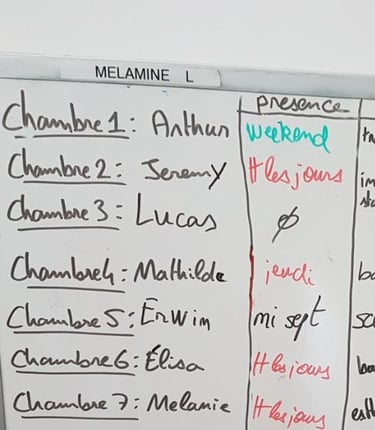 MELAMINE L
presence
Chambre 1 : Arthur weekend
Chambre 2 : Jeremy tt les jours
Chambre 3 : Lucas ∅
Chambre 4 : Mathilde jeudi
Chambre 5 : Erwim mi sept
Chambre 6 : Élisa tt les jours
Chambre 7 : Melanie tt les jours